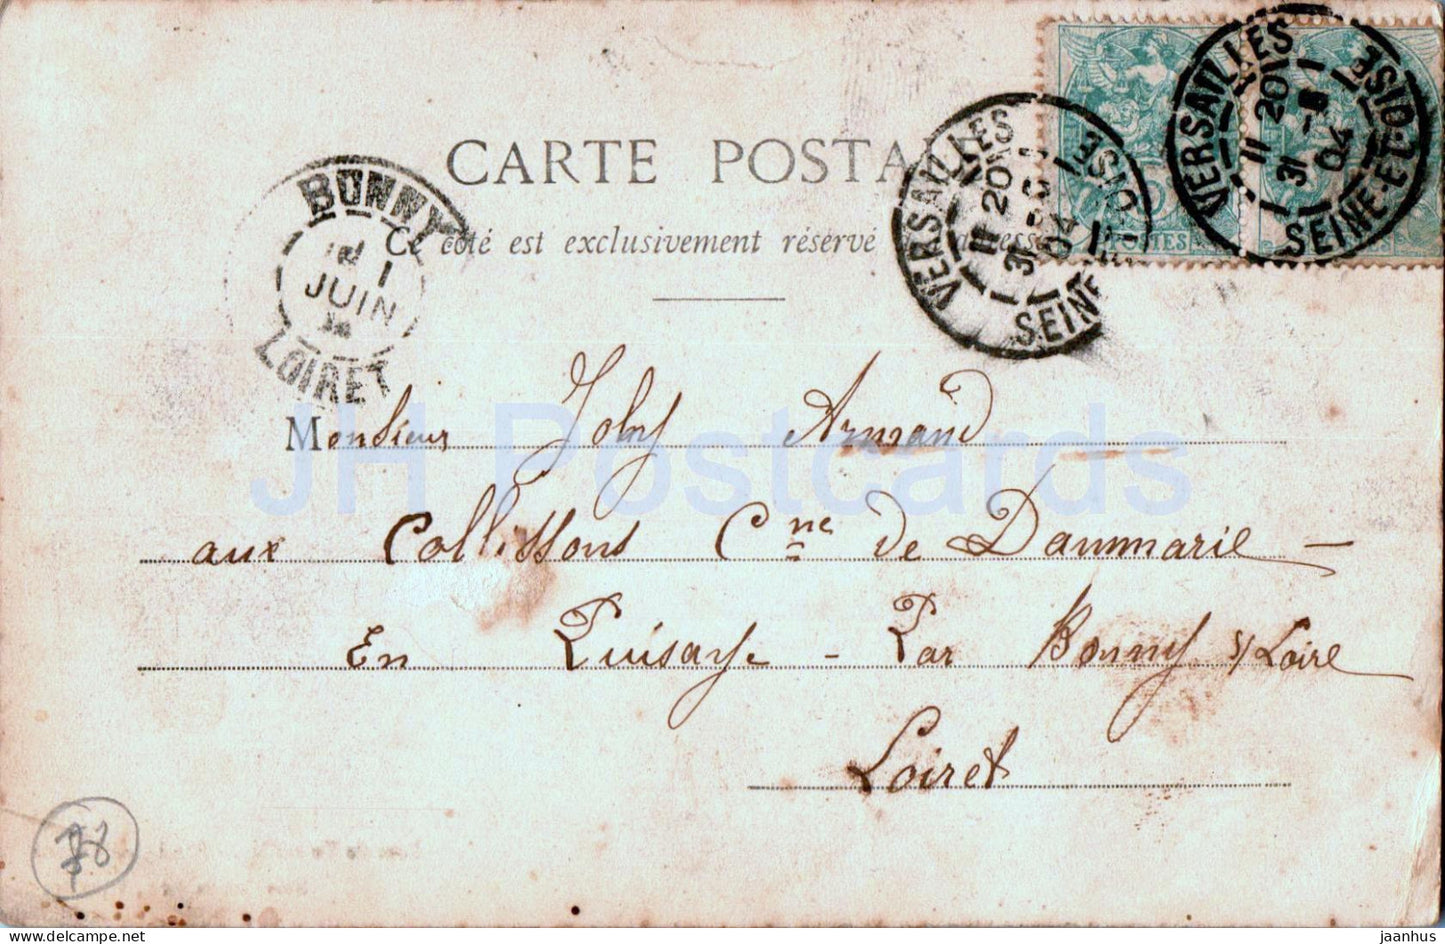 CARTE POSTALE
Ce côté est exclusivement réservé à l'adresse
BONNY
1
JUIN
LOIRET
VERSAILLES
11 20
31 -5
04
SEINE-ET-OISE
VERSAILLES
11 20
31
04
SEINE
OISE
POSTES
Monsieur Joly Armand
aux Collissons Cne de Dammarie -
En Puisaye - Par Bonny s/ Loire
Loiret
JH Postcards
78
jaanhus